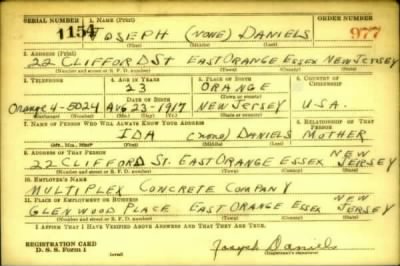 SERIAL NUMBER 1. NAME (Print) ORDER NUMBER
1154 JOSEPH (NONE) DANIELS 977
(First) (Middle) (Last)
2. ADDRESS (Print)
22 CLIFFORD ST EAST ORANGE ESSEX NEW JERSEY
(Number and street or R. F. D. number) (Town) (County) (State)
3. TELEPHONE 4. AGE IN YEARS 5. PLACE OF BIRTH 6. COUNTRY OF CITIZENSHIP
23 ORANGE
DATE OF BIRTH (Town or county)
Orange 4-5024 AUG 23-1917 NEW JERSEY U.S.A.
(Exchange) (No.) (Mo.) (Day) (Yr.) (State or country)
7. NAME OF PERSON WHO WILL ALWAYS KNOW YOUR ADDRESS 8. RELATIONSHIP OF THAT PERSON
IDA (NONE) DANIELS MOTHER
(Mr., Mrs., Miss) (First) (Middle) (Last)
9. ADDRESS OF THAT PERSON
22 CLIFFORD ST. EAST ORANGE ESSEX NEW JERSEY
(Number and street or R. F. D. number) (Town) (County) (State)
10. EMPLOYER'S NAME
MULTIPLEX CONCRETE COMPANY
11. PLACE OF EMPLOYMENT OR BUSINESS
GLENWOOD PLACE EAST ORANGE ESSEX NEW JERSEY
(Number and street or R. F. D. number) (Town) (County) (State)
I AFFIRM THAT I HAVE VERIFIED ABOVE ANSWERS AND THAT THEY ARE TRUE.
REGISTRATION CARD
D. S. S. Form 1 (over) Joseph Daniels
(Registrant's signature)